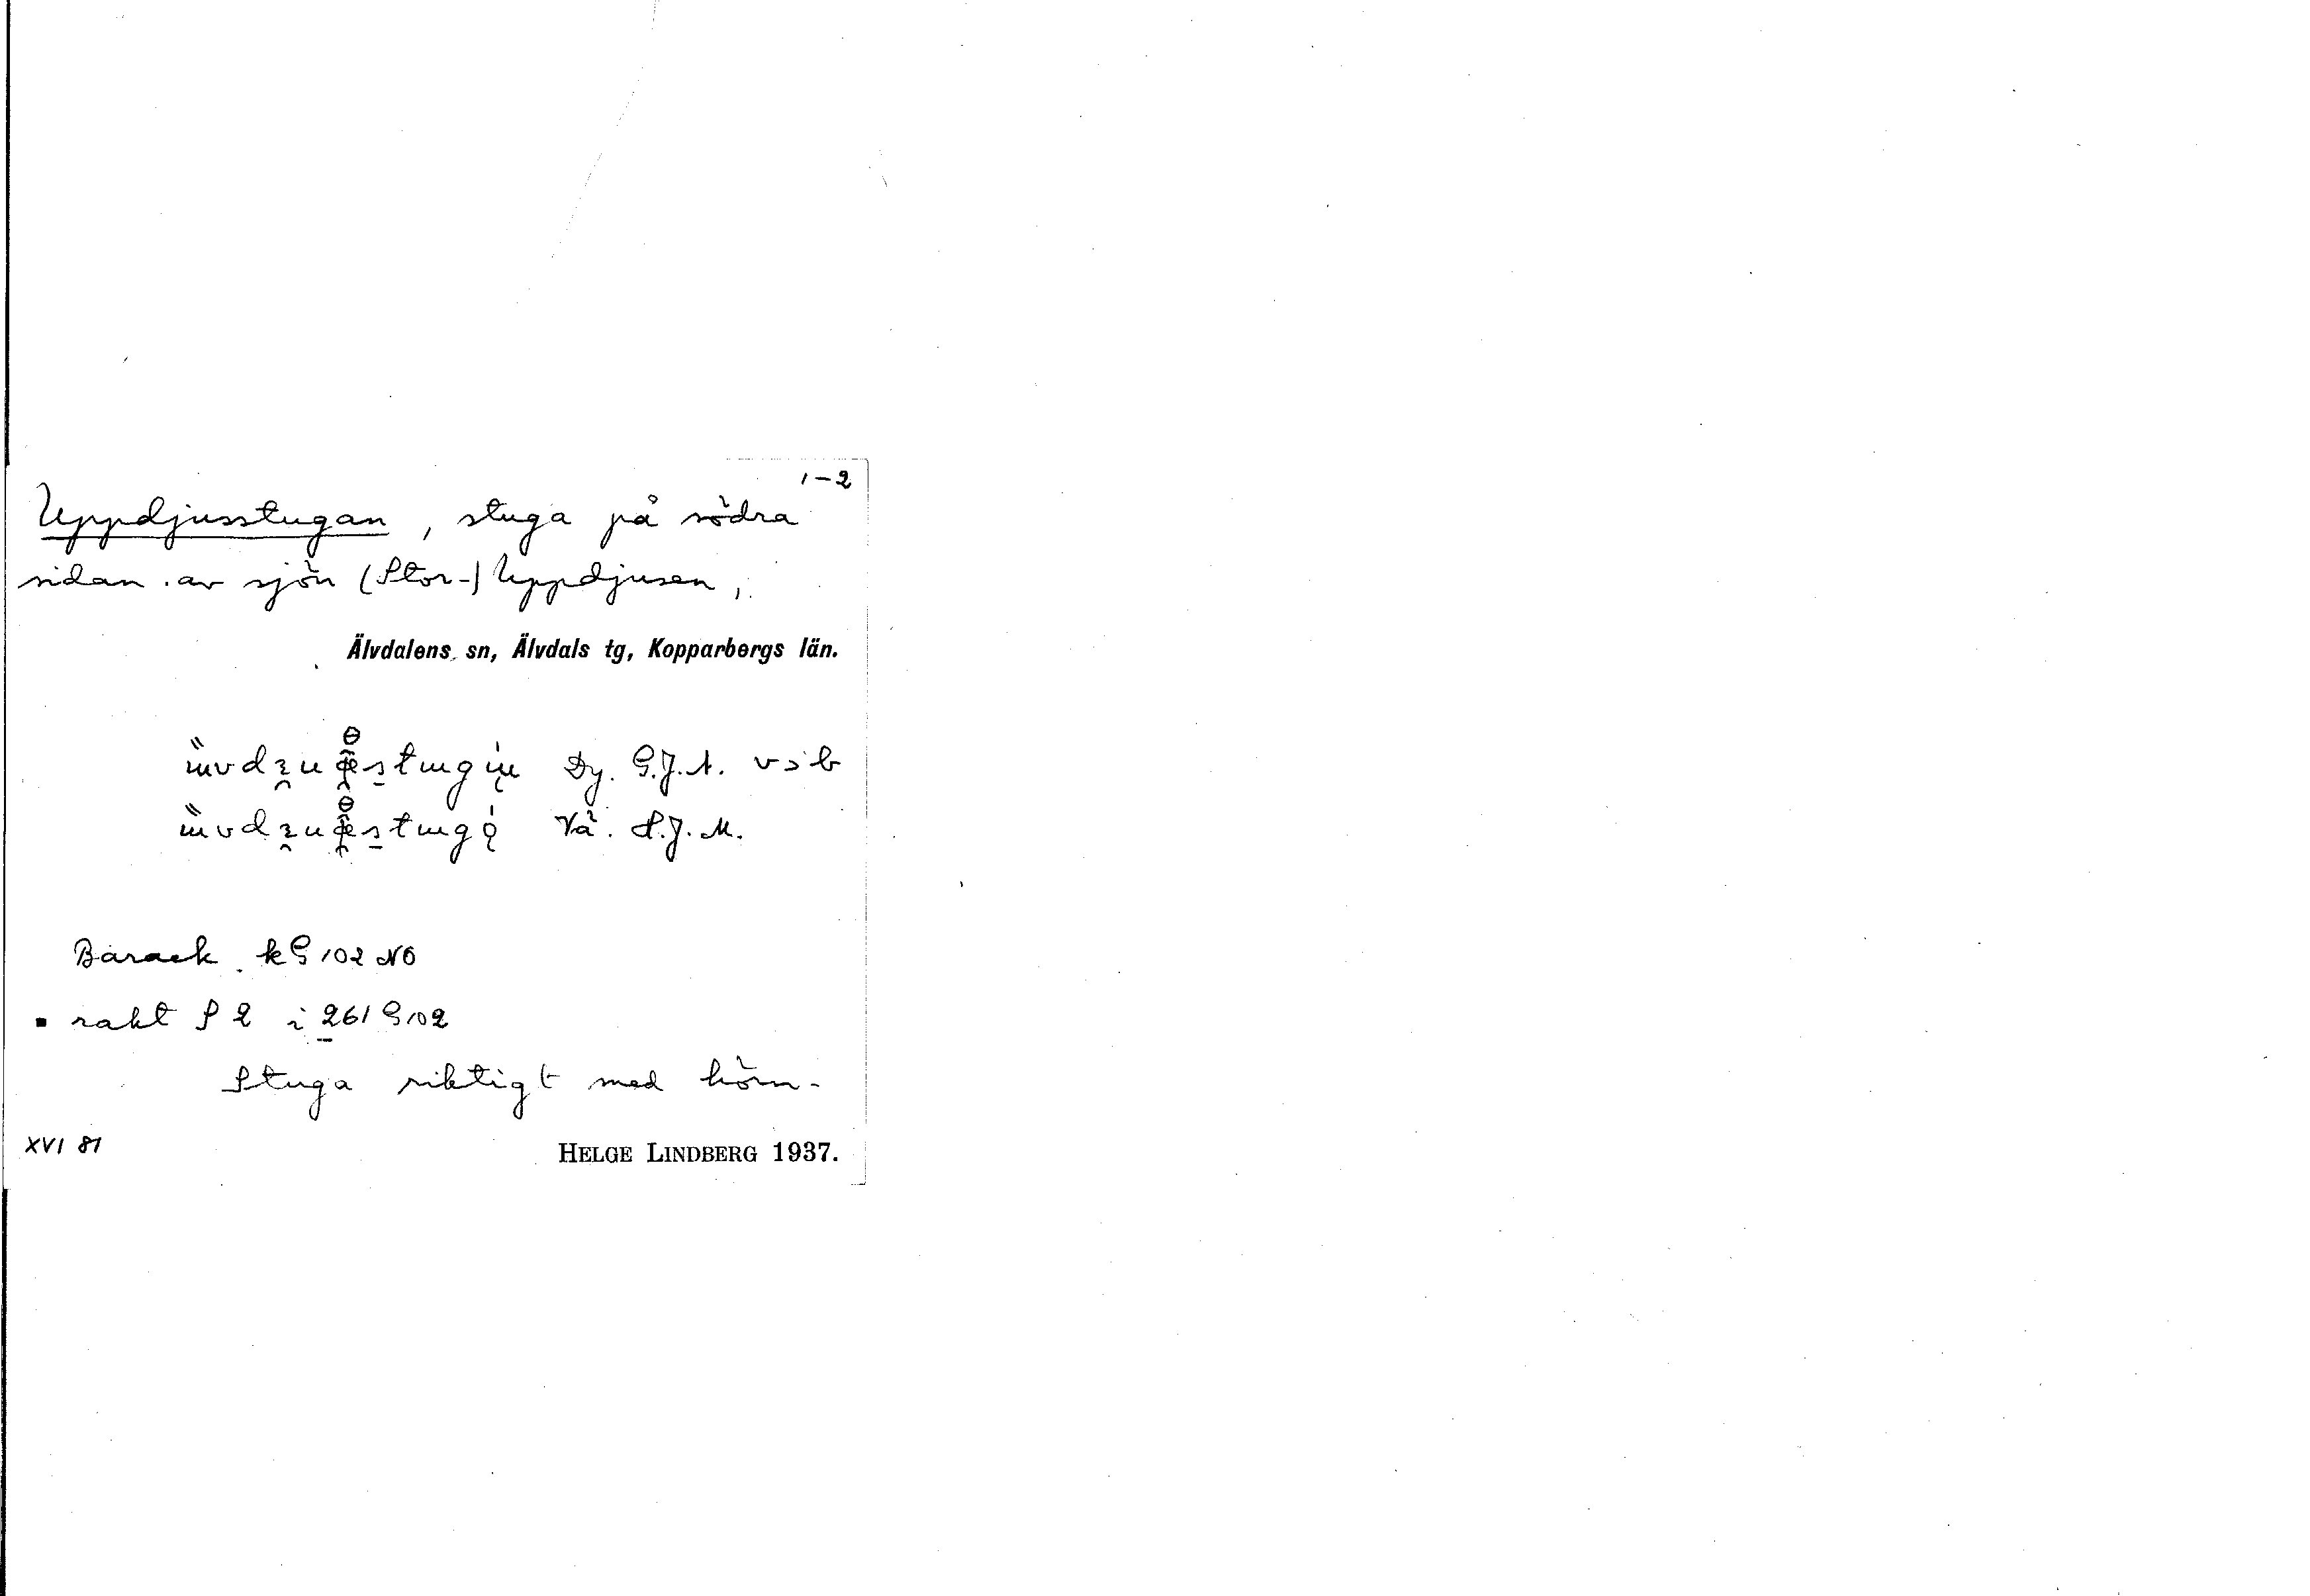 1-2
Uppdjusstugan, stuga på södra
sidan av sjön (Stor-) Uppdjusen,
Älvdalens sn, Älvdals tg, Kopparbergs län.
Dy. G.J.A. v>b
Vå. S.J.M.
Barack kG 102 NÖ
▪ rakt S 2 i 261 G 102
Stuga riktigt med hörn-
XVI 81
HELGE LINDBERG 1937.